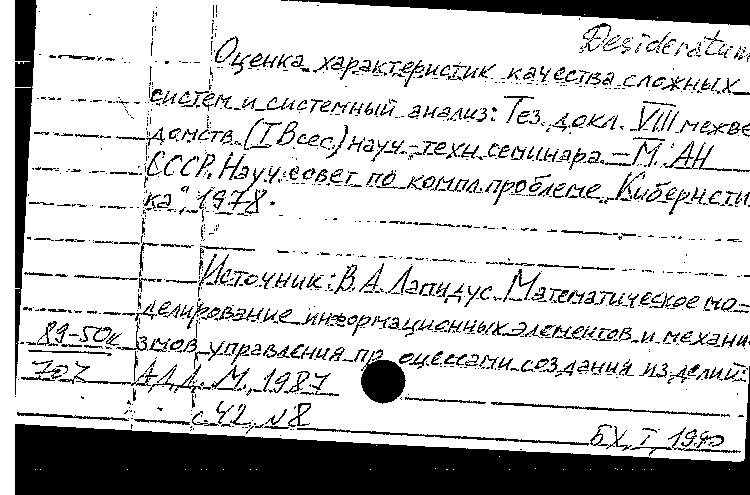 Desideratum
Оценка характеристик качества сложных
систем и системный анализ: Тез. докл. VIII межве-
домств. (I Всес.) науч.-техн. семинара. – М.: АН
СССР. Науч. совет по компл. проблеме „Кибернети-
ка“, 1978.
Источник: В.А. Лапидус. Математическое мо-
делирование информационных элементов и механи-
змов управления процессами создания изделий:
89-50к
707
АДД. М., 1987
с. 42, №8
БХ, I, 1990